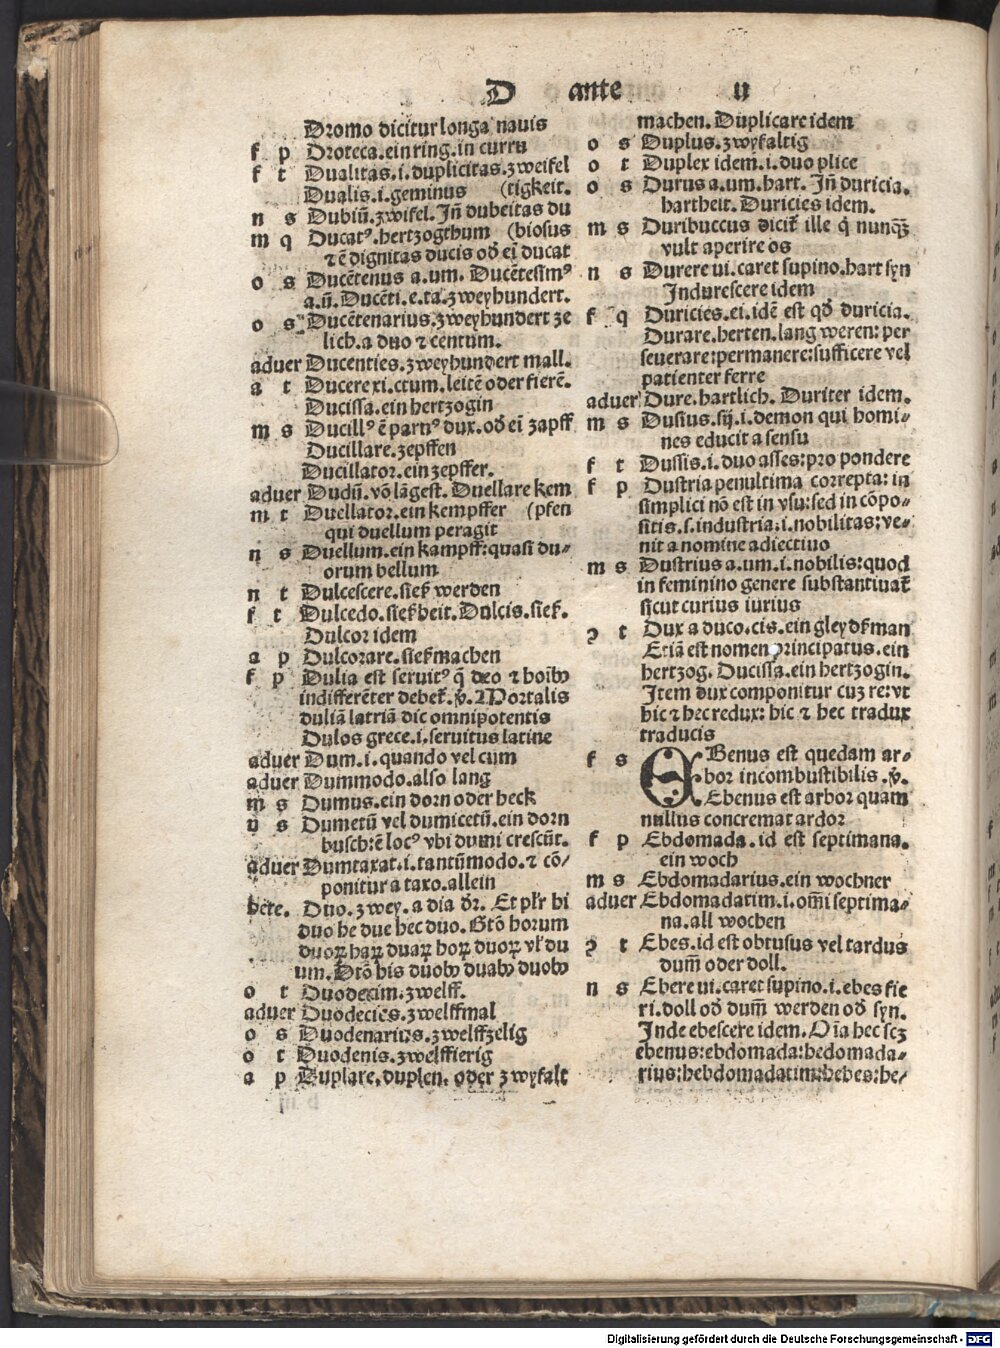 D ante u
Dromo dicitur longa nauis
f p Droteca.ein ring.in curru
f t Dualitas.i.duplicitas.zweifel
Dualis.i.geminus (tigkeit.
n s Dubiū.zwifel.Jn̄ dubeitas du
m q Ducatꝰ.hertzogthum (biosus
⁊ ē dignitas ducis od̓ eī ducat
o s Ducētenus a.um. Ducētesimꝰ
a.ū.Ducēti.e.ta.zweyhundert.
o s Ducētenarius.zweyhundert ze
lich.a duo ⁊ centum.
aduer Ducenties.zweyhundert mall.
a t Ducere xi.ctum.leitē oder fierē.
Ducissa.ein hertzogin
m s Ducillꝰ ē paruꝰ dux.od̓ eī zapff
Ducillare.zepffen
Ducillator.ein zepffer.
aduer Dudū.vō lāgest. Duellare kem
m t Duellator.ein kempffer (pfen
qui duellum peragit
n s Duellum.ein kampff:quasi du-
orum bellum
n t Dulcescere.sieß werden
f t Dulcedo.sießheit.Dulcis.sieß.
Dulcor idem
a p Dulcorare.sieß machen
f p Dulia est seruitꝰ q̄ deo ⁊ hoībꝰ
indifferēter debet᷑.v̓.Mortalis
duliā latriā dic omnipotentis
Dulos grece.i.seruitus latine
aduer Dum.i.quando vel cum
aduer Dummodo.also lang
m s Dumus.ein dorn oder heck
n s Dumetū vel dumicetū.ein dorn
busch:ē locꝰ vbi dumi crescūt.
aduer Dumtaxat.i.tantūmodo.⁊ cō/
ponitur a taxo.allein
hete. Duo.zwey.a dia d̓r. Et pl̓r hi
duo he due hec duo. Gtō horum
duoꝝ haꝝ duaꝝ hoꝝ duoꝝ vl̓ du
um.Dtō his duobꝰ duabꝰ duobꝰ
o t Duodecim.zwelff.
aduer Duodecies.zwelffmal
o s Duodenarius.zwelffzelig
o t Duodenis.zwelffierig
a p Duplare.duplen. oder zwyfalt
machen.Duplicare idem
o s Duplus.zwyfaltig
o t Duplex idem.i.duo plice
o s Durus a.um.hart. Jn̄ duricia.
hartheit.Duricies idem.
m s Duribuccus dicit᷑ ille q̓ nunqꝫ
vult aperire os
n s Durere ui.caret supino.hart syn
Jndurescere idem
f q Duricies.ei.idē est qd̓ duricia.
Durare.herten.lang weren:per
seuerare:permanere:sufficere vel
patienter ferre
aduer Dure.hartlich. Duriter idem.
m s Dusius.sij.i.demon qui homi-
nes educit a sensu
f t Dussis.i.duo asses:pro pondere
f p Dustria penultima correpta: in
simplici nō est in vsu:sed in cōpo-
sitis.s.industria:i.nobilitas:ve-
nit a nomine adiectiuo
m s Dustrius a.um.i.nobilis:quod
in feminino genere substantiuat᷑
sicut curius iurius
ꝯ t Dux a duco.cis.ein gleydßman
Etiā est nomen principatus.ein
hertzog. Ducissa.ein hertzogin.
Jtem dux componitur cuz re:vt
hic ⁊ hec redux: hic ⁊ hec tradux
traducis
f s EBenus est quedam ar-
bor incombustibilis .v̓.
Ebenus est arbor quam
nullus concremat ardor
f p Ebdomada.id est septimana.
ein woch
m s Ebdomadarius.ein wochner
aduer Ebdomadatim.i.om̄i septima-
na.all wochen
ꝯ t Ebes.id est obtusus vel tardus
dum̄ oder doll.
n s Ebere ui.caret supino.i.ebes fie
ri.doll od̓ dum̄ werden od̓ syn.
Jnde ebescere idem. Oīa hec scꝫ
ebenus:ebdomada:hedomada-
rius:hebdomadatim:hebes:he/
Digitalisierung gefördert durch die Deutsche Forschungsgemeinschaft - DFG